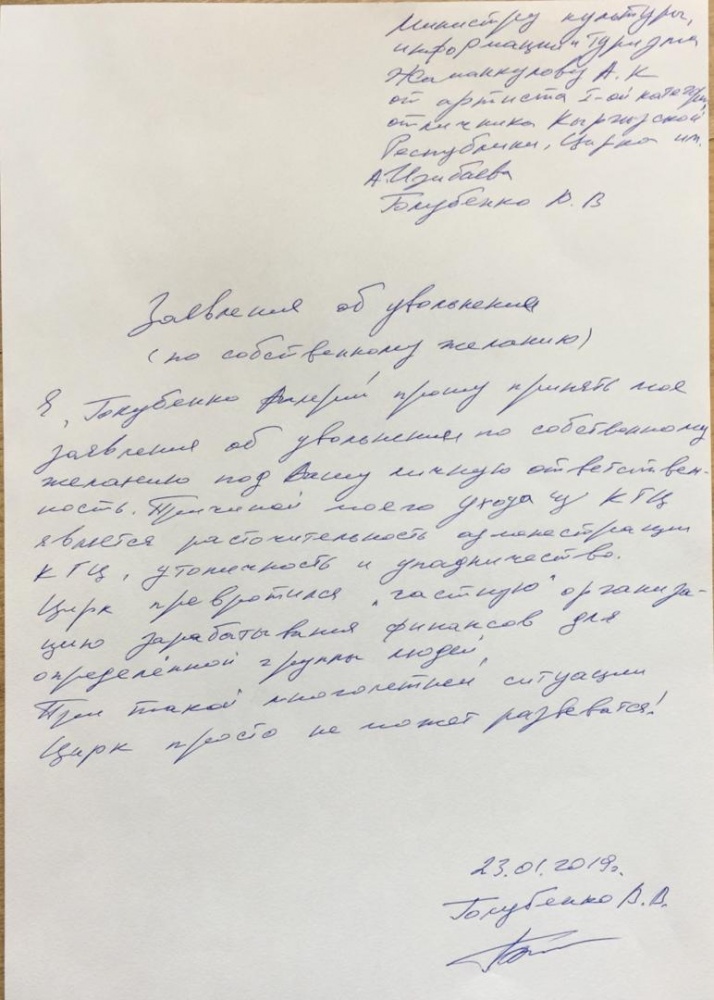 Министру культуры,
информации и туризма
Жаманкулову А. К
от артиста I-ой категории,
отличника Кыргызской
Республики, Цирка им.
А. Изибаева
Голубенко В. В
Заявления об увольнения
(по собственному желанию)
Я, Голубенко Валерий прошу принять мое
заявления об увольнения по собственному
желанию под Вашу личную ответствен-
ность. Причиной моего ухода из КГЦ
является расточительность администрации
КГЦ, утопичность и упадничество.
Цирк превратился "частную" организа-
цию зарабатывания финансов для
определённой группы людей,
При такой многолетней ситуации
Цирк просто не может развеватся!
23.01.2019г.
Голубенко В. В.